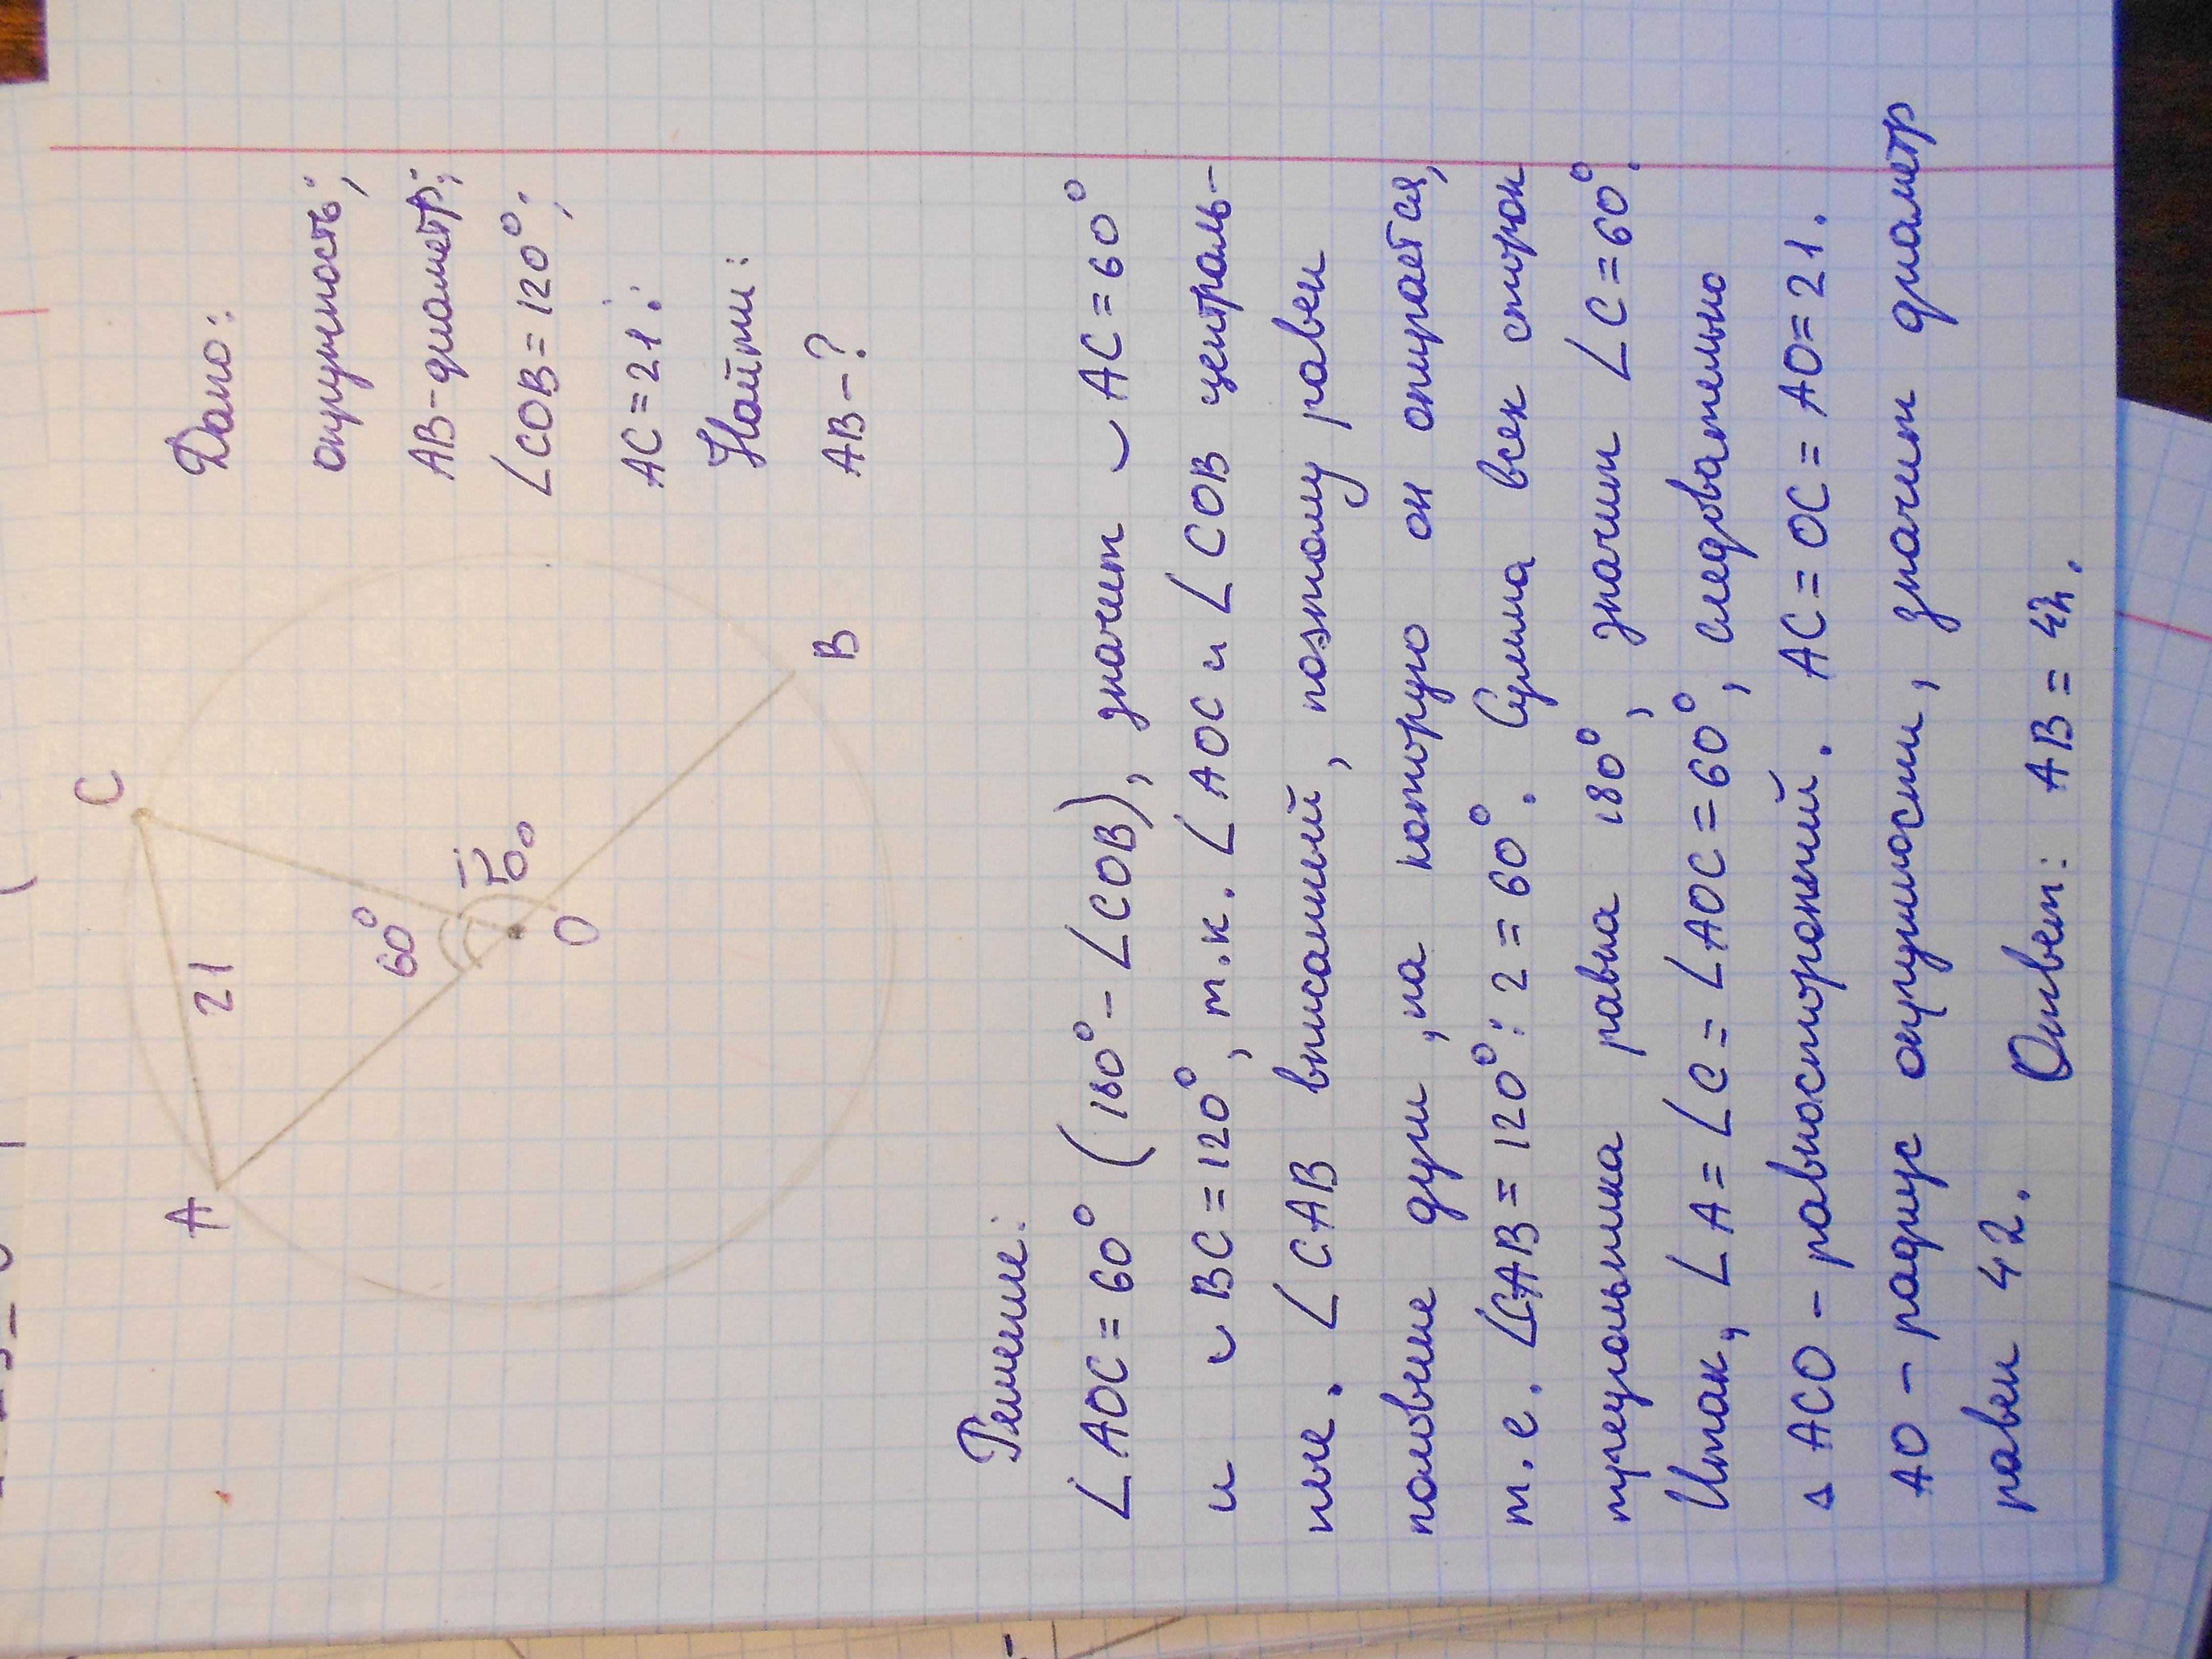 C
A
21
60°
120°
O
B
Дано:
окружность;
AB-диаметр;
∠COB=120°;
AC=21.
Найти:
AB-?
Решение:
∠AOC=60° (180°-∠COB), значит ◡AC=60°
и ◡BC=120°, т.к. ∠AOC и ∠COB централь-
ные. ∠CAB вписанный, поэтому равен
половине дуги, на которую он опирается,
т.е. ∠CAB=120°:2=60°. Сумма всех сторон
треугольника равна 180°, значит ∠C=60°.
Итак, ∠A=∠C=∠AOC=60°, следовательно
△ACO - равносторонний. AC=OC=AO=21.
AO - радиус окружности, значит диаметр
равен 42.
Ответ: AB=42.